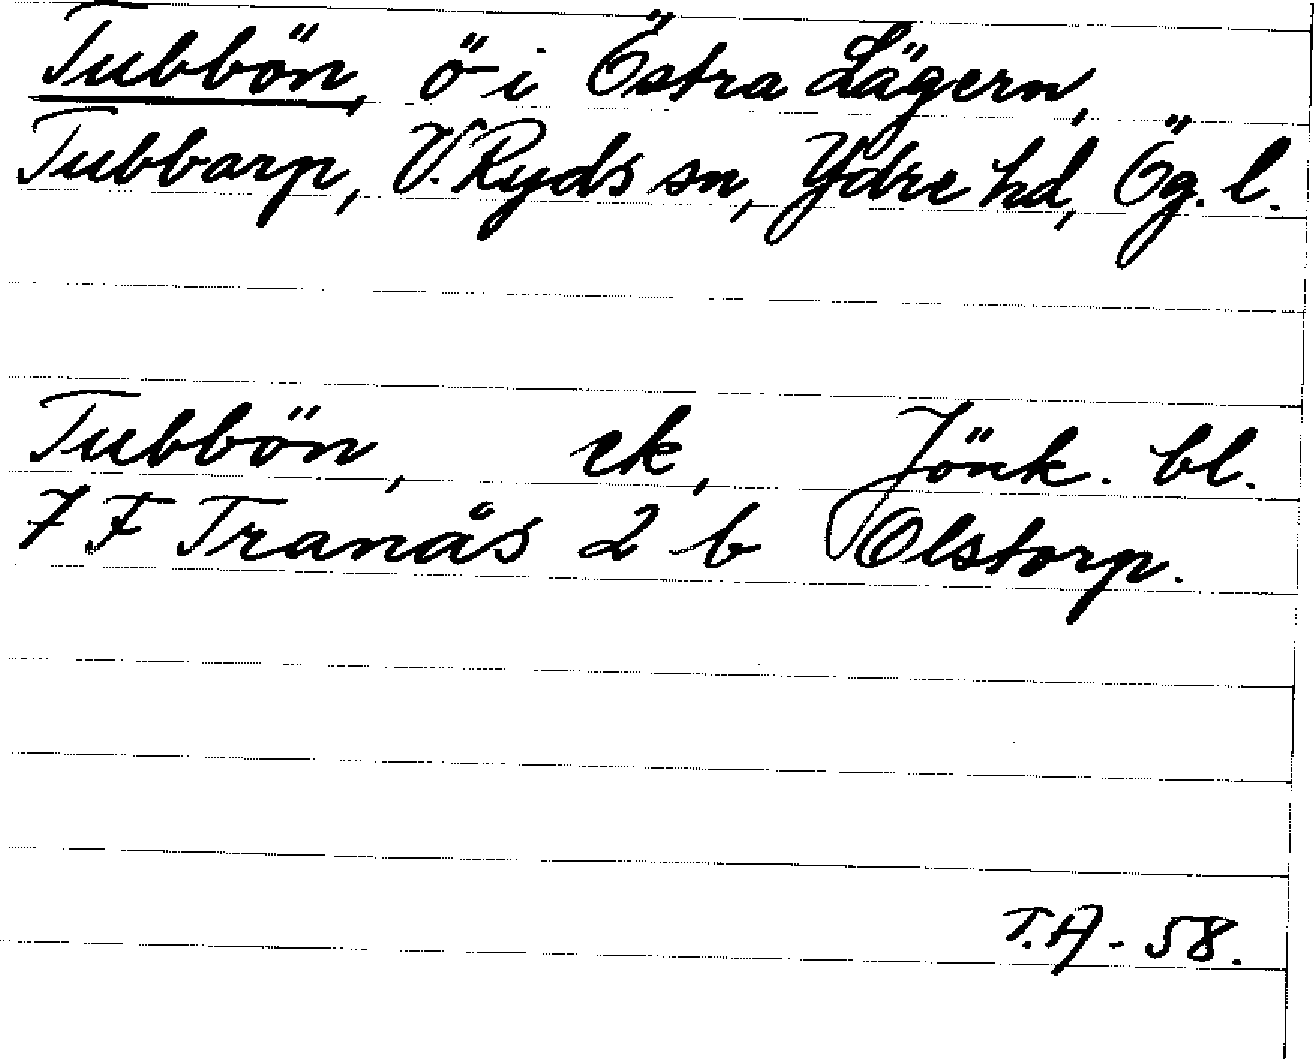 Tubbön, ö i Östra Lägern,
Tubbarp, V. Ryds sn, Ydre hd, Ög. l.
Tubbön, ek, Jönk. bl.
7 F Tranås 2 b Olstorp.
T.A - 58.